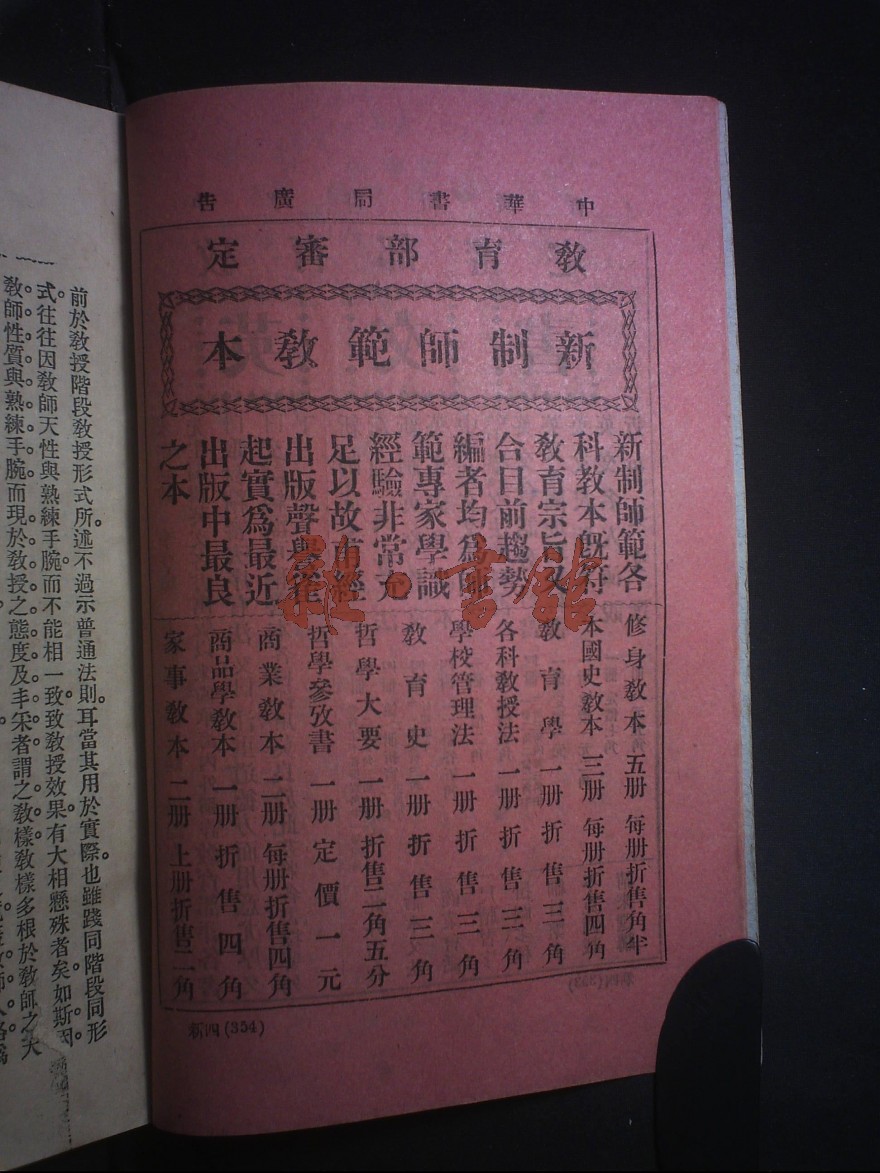 中華書局廣告
教育部審定
新制師範教本
新制師範各
科教本既符
教育宗旨又
合目前趨勢
編者均爲師
範專家學識
經驗非常充
足以故甫經
出版聲譽雀
起實爲最近
出版中最良
之本
修身教本 五册 每册折售角半
本國史教本 三册 每册折售四角
教育學 一册 折售三角
各科教授法 一册 折售三角
學校管理法 一册 折售三角
教育史 一册 折售三角
哲學大要 一册 折售二角五分
哲學參攷書 一册 定價一元
商業教本 二册 每册折售四角
商品學教本 一册 折售四角
家事教本 二册 上册折售二角
新四(354)
雜·書館
前於教授階段教授形式所述不過示普通法則耳當其用於實際也雖踐同階段同形
式往往因教師天性與熟練手腕而不能相一致致教授效果有大相懸殊者矣如斯因
教師性質與熟練手腕而現於教授之態度及丰采者謂之教樣教樣多根於教師之天